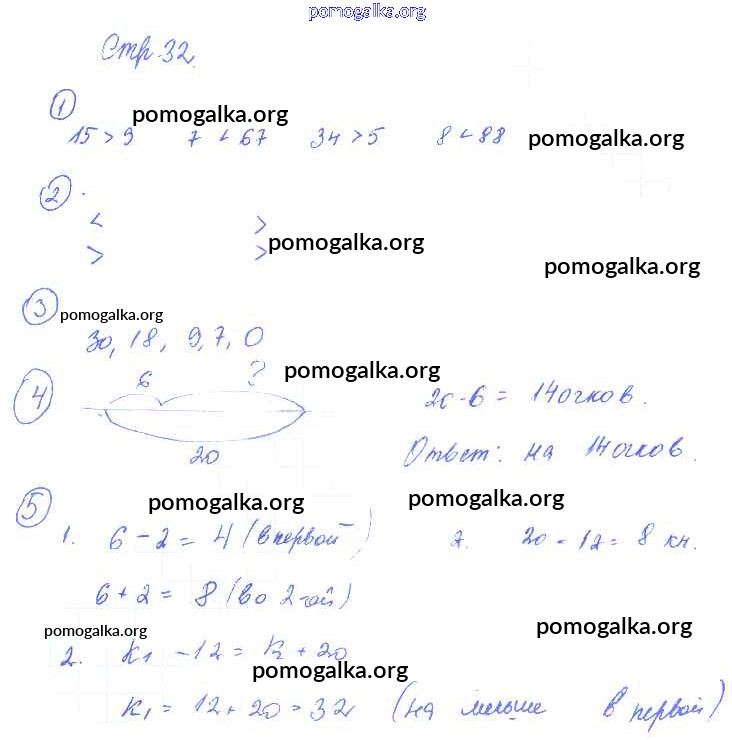 pomogalka.org
Стр. 32.
1 pomogalka.org
15 > 9 7 < 67 34 > 5 8 < 88 pomogalka.org
2
< >
> > pomogalka.org
pomogalka.org
3 pomogalka.org
30, 18, 9, 7, 0
6 ? pomogalka.org
4 20 - 6 = 14 очков.
20 Ответ: на 14 очков.
5 pomogalka.org pomogalka.org
1. 6 - 2 = 4 (в первой) 2. 20 - 12 = 8 кн.
6 + 2 = 8 (во 2-ой)
pomogalka.org pomogalka.org
2. К1 - 12 = К2 + 20
pomogalka.org
К1 = 12 + 20 = 32 (на меньше в первой)